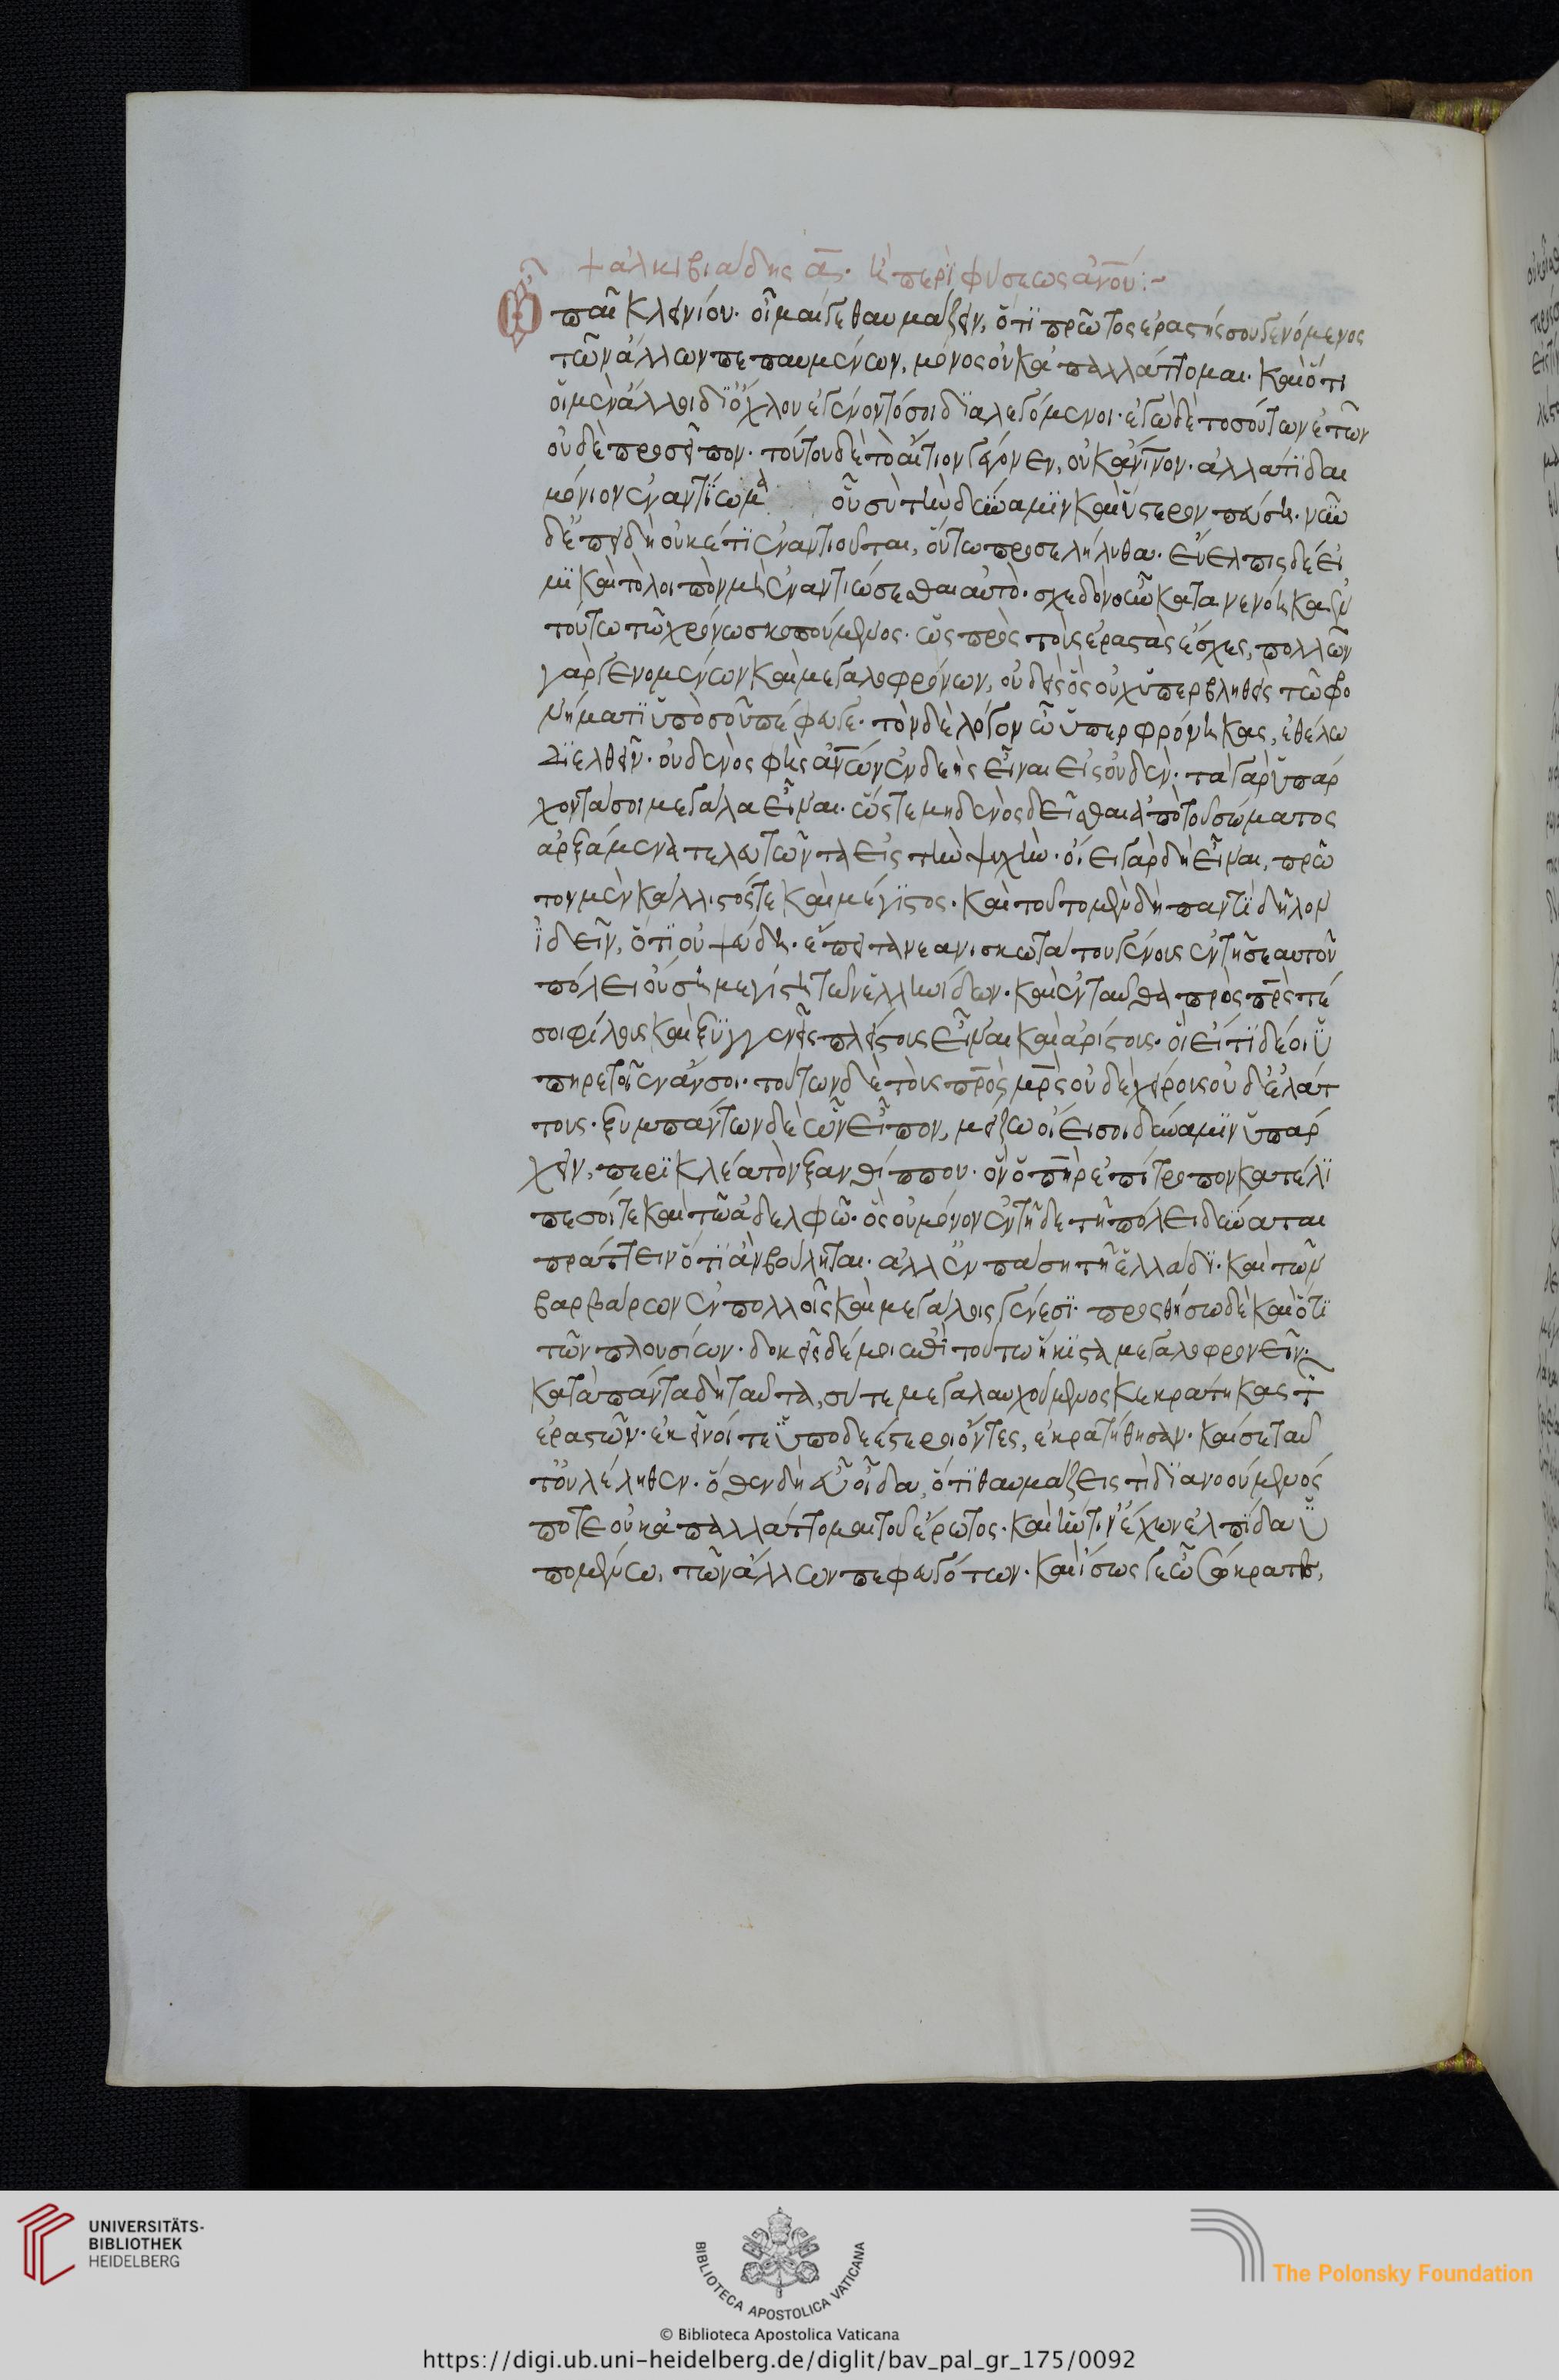 + ἀλκιβιάδης ᾱς. ἢ περὶ φύσεως ἀν̅ου:~
Ὦ παῖ κλεινίου. οἶμαί σε θαυμάζειν, ὅτι πρῶτος ἐραστής σου γενόμενος
τῶν ἄλλων πεπαυμένων, μόνος οὐκ ἀπαλλάττομαι. καὶ ὅτι
οἱ μὲν ἄλλοι δι' ὄχλου ἐγένοντό σοι διαλεγόμενοι. ἐγὼ δὲ τοσούτων ἐτῶν
οὐδὲ προσεῖπον. τούτου δὲ τὸ αἴτιον γέγονεν, οὐκ ἀν̅ινον. ἀλλά τι δαι
μόνιον ἐναντίωμα οὗ σὺ τὴν δύναμιν καὶ ὕστερον πεύσῃ. νῦν
δὲ ἐπειδὴ οὐκέτι ἐναντιοῦται, οὕτω προσελήλυθα. εὔελπις δέ εἰ
μι καὶ τὸ λοιπὸν μὴ ἐναντιώσεσθαι αὐτό. σχεδὸν οὖν κατανενόηκα ἐν
τούτω τῶ χρόνω σκοπούμενος. ὡς πρὸς τοὺς ἐραστὰς ἔσχες, πολλῶν
γὰρ γενομένων καὶ μεγαλοφρόνων, οὐδεὶς ὃς οὐχ ὑπερβληθεὶς τῶ φρο
νήματι ὑπὸ σοῦ πέφευγε. τὸν δὲ λόγον ὧ ὑπερφρόνηκας, ἐθέλω
διελθεῖν. οὐδενὸς φὴς ἀν̅ων ἐνδεὴς εἶναι εἰς οὐδέν. τὰ γὰρ ὑπάρ
χοντά σοι μεγάλα εἶναι. ὥστε μηδενὸς δεῖσθαι ἀπὸ τοῦ σώματος
ἀρξάμενα τελευτῶντα εἰς τὴν ψυχήν. οἴει γὰρ δὴ εἶναι, πρῶ
τον μὲν κάλλιστός τε καὶ μέγιστος. καὶ τοῦτο μὲν δὴ παντὶ δῆλον
ἰδεῖν, ὅτι οὐ ψεύδῃ. ἔπειτα νεανικωτάτου γένους ἐν τῆ σεαυτοῦ
πόλει οὔσῃ μεγίστῃ τῶν ἑλληνίδων. καὶ ἐνταῦθα πρὸς πρ̅ς τέ
σοι φίλους καὶ ξυγγενεῖς πλείστους εἶναι καὶ ἀρίστους. οἳ εἴ τι δέοι ὑ
πηρετοῖεν ἄν σοι. τούτων δὲ τοὺς πρὸς μρ̅ς οὐδὲ χείρους οὐδ' ἐλάτ
τους. ξυμπάντων δὲ ὧν εἶπον, μείζω οἴει σοι δύναμιν ὑπάρ
χειν, περικλέα τὸν ξανθίππου. ὃν ὁ πη̅ρ ἐπίτροπον κατέλι
πε σοί τε καὶ τῶ ἀδελφῶ. ὃς οὐ μόνον ἐν τῆδε τῆ πόλει δύναται
πράττειν ὅτι ἂν βούληται. ἀλλ' ἐν πάση τῆ ἑλλάδι. καὶ τῶν
βαρβάρων ἐν πολλοῖς καὶ μεγάλοις γένεσι. προσθήσω δὲ καὶ ὅτι
τῶν πλουσίων. δοκεῖς δέ μοι ἐπὶ τούτω ἥκιστα μεγαλοφρονεῖν.
κατὰ πάντα δὴ ταῦτα, σύ τε μεγαλαυχούμενος κεκράτηκας τῶν
ἐραστῶν. ἐκεῖνοί τε ὑποδεέστεροι ὄντες, ἐκρατήθησαν. καί σε ταῦ
τ' οὐ λέληθεν. ὅθεν δὴ εὖ οἶδα, ὅτι θαυμάζεις τί διανοούμενός
ποτε οὐκ ἀπαλλάττομαι τοῦ ἔρωτος. καὶ ἥντιν' ἔχων ἐλπίδα ὑ
πομένω, τῶν ἄλλων πεφευγότων. καὶ ἴσως γε ὦ σώκρατες,
UNIVERSITÄTS-
BIBLIOTHEK
HEIDELBERG
BIBLIOTECA APOSTOLICA VATICANA
The Polonsky Foundation
© Biblioteca Apostolica Vaticana
https://digi.ub.uni-heidelberg.de/diglit/bav_pal_gr_175/0092